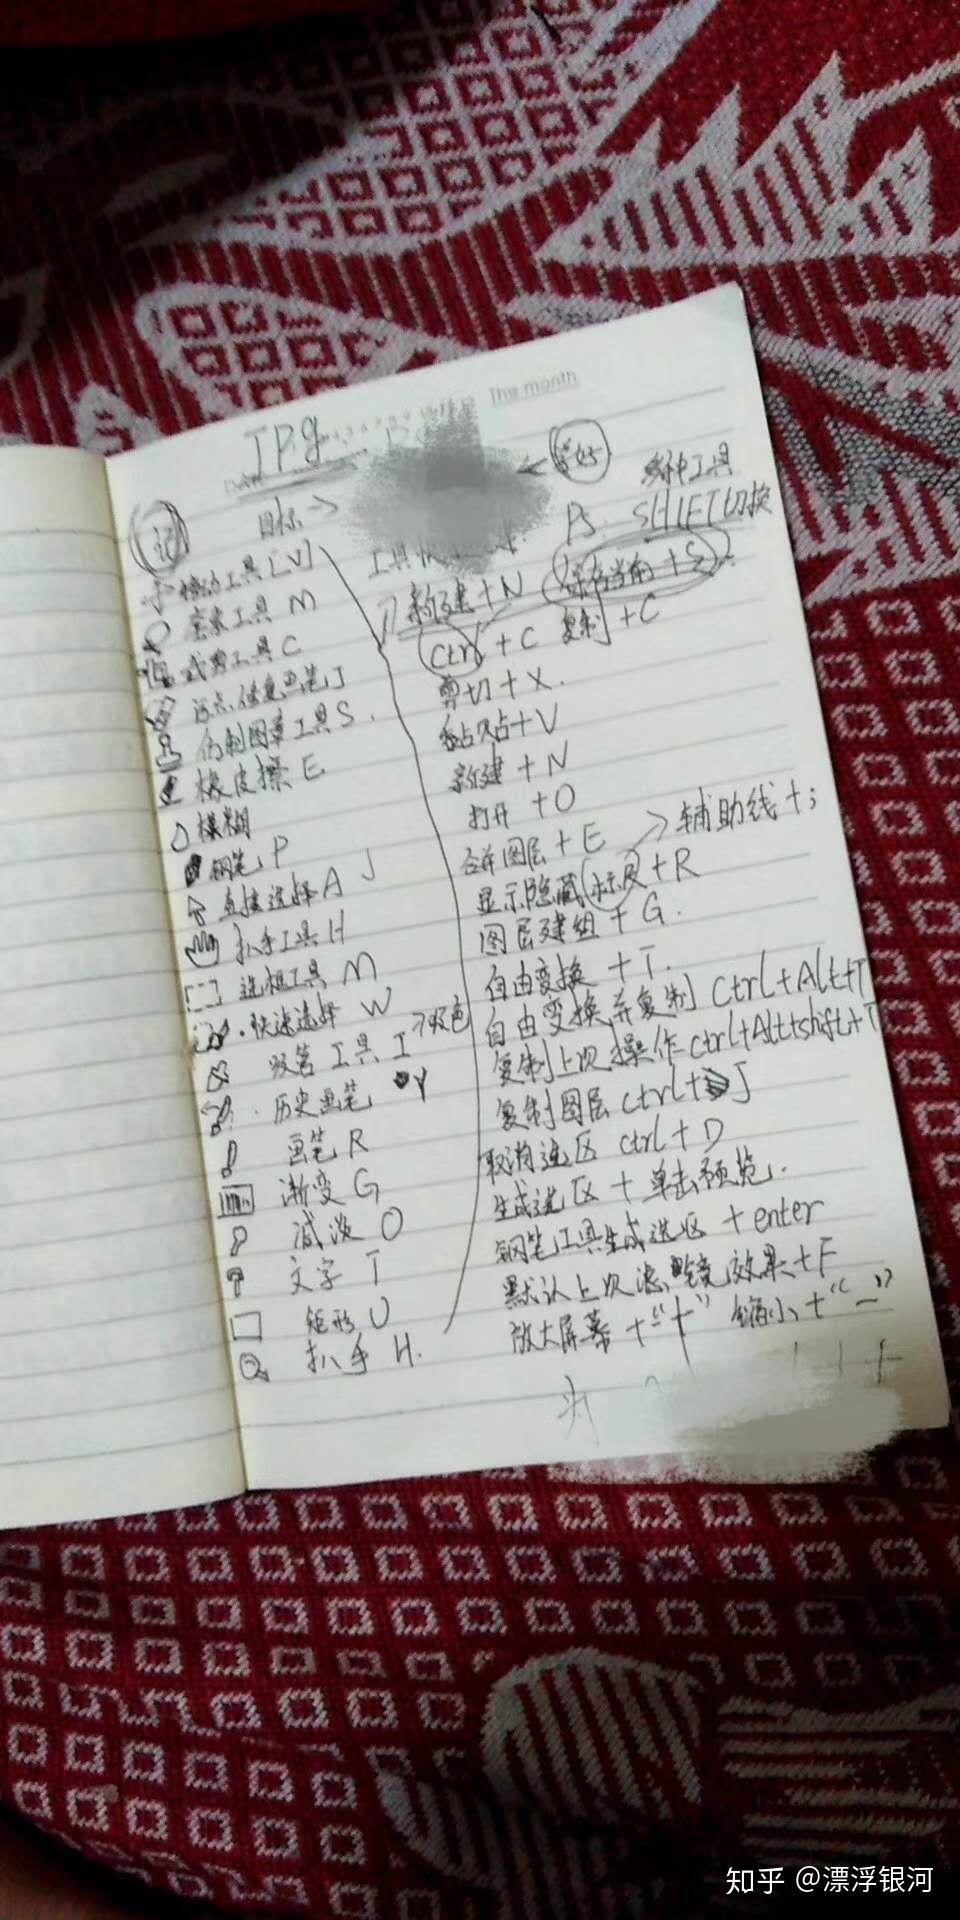 The month
JPg
记
目标→
选中工具
Ps. SHIFT切换
移动工具[V]
套索工具 M
裁剪工具 C
污点修复画笔 J
仿制图章工具 S.
橡皮擦 E
模糊
钢笔 P
直接选择 A
抓手工具 H
选框工具 M
快速选择 W
吸管工具 I →吸色
历史画笔 Y
画笔 R
渐变 G
减淡 O
文字 T
矩形 U
抓手 H.
新建+N 保存当前+S
Ctrl+C 复制+C
剪切+X.
黏贴+V
新建+N
打开+O
合并图层+E →辅助线+;
显示隐藏标尺+R
图层建组+G.
自由变换+T.
自由变换并复制 Ctrl+Alt+T
复制上次操作 ctrl+Alt+shift+T
复制图层 ctrl+J
取消选区 ctrl+D
生成选区+单击预览.
钢笔工具生成选区+enter
默认上次滤镜效果+F
放大屏幕+"+" 缩小+"-"
知乎 @漂浮银河